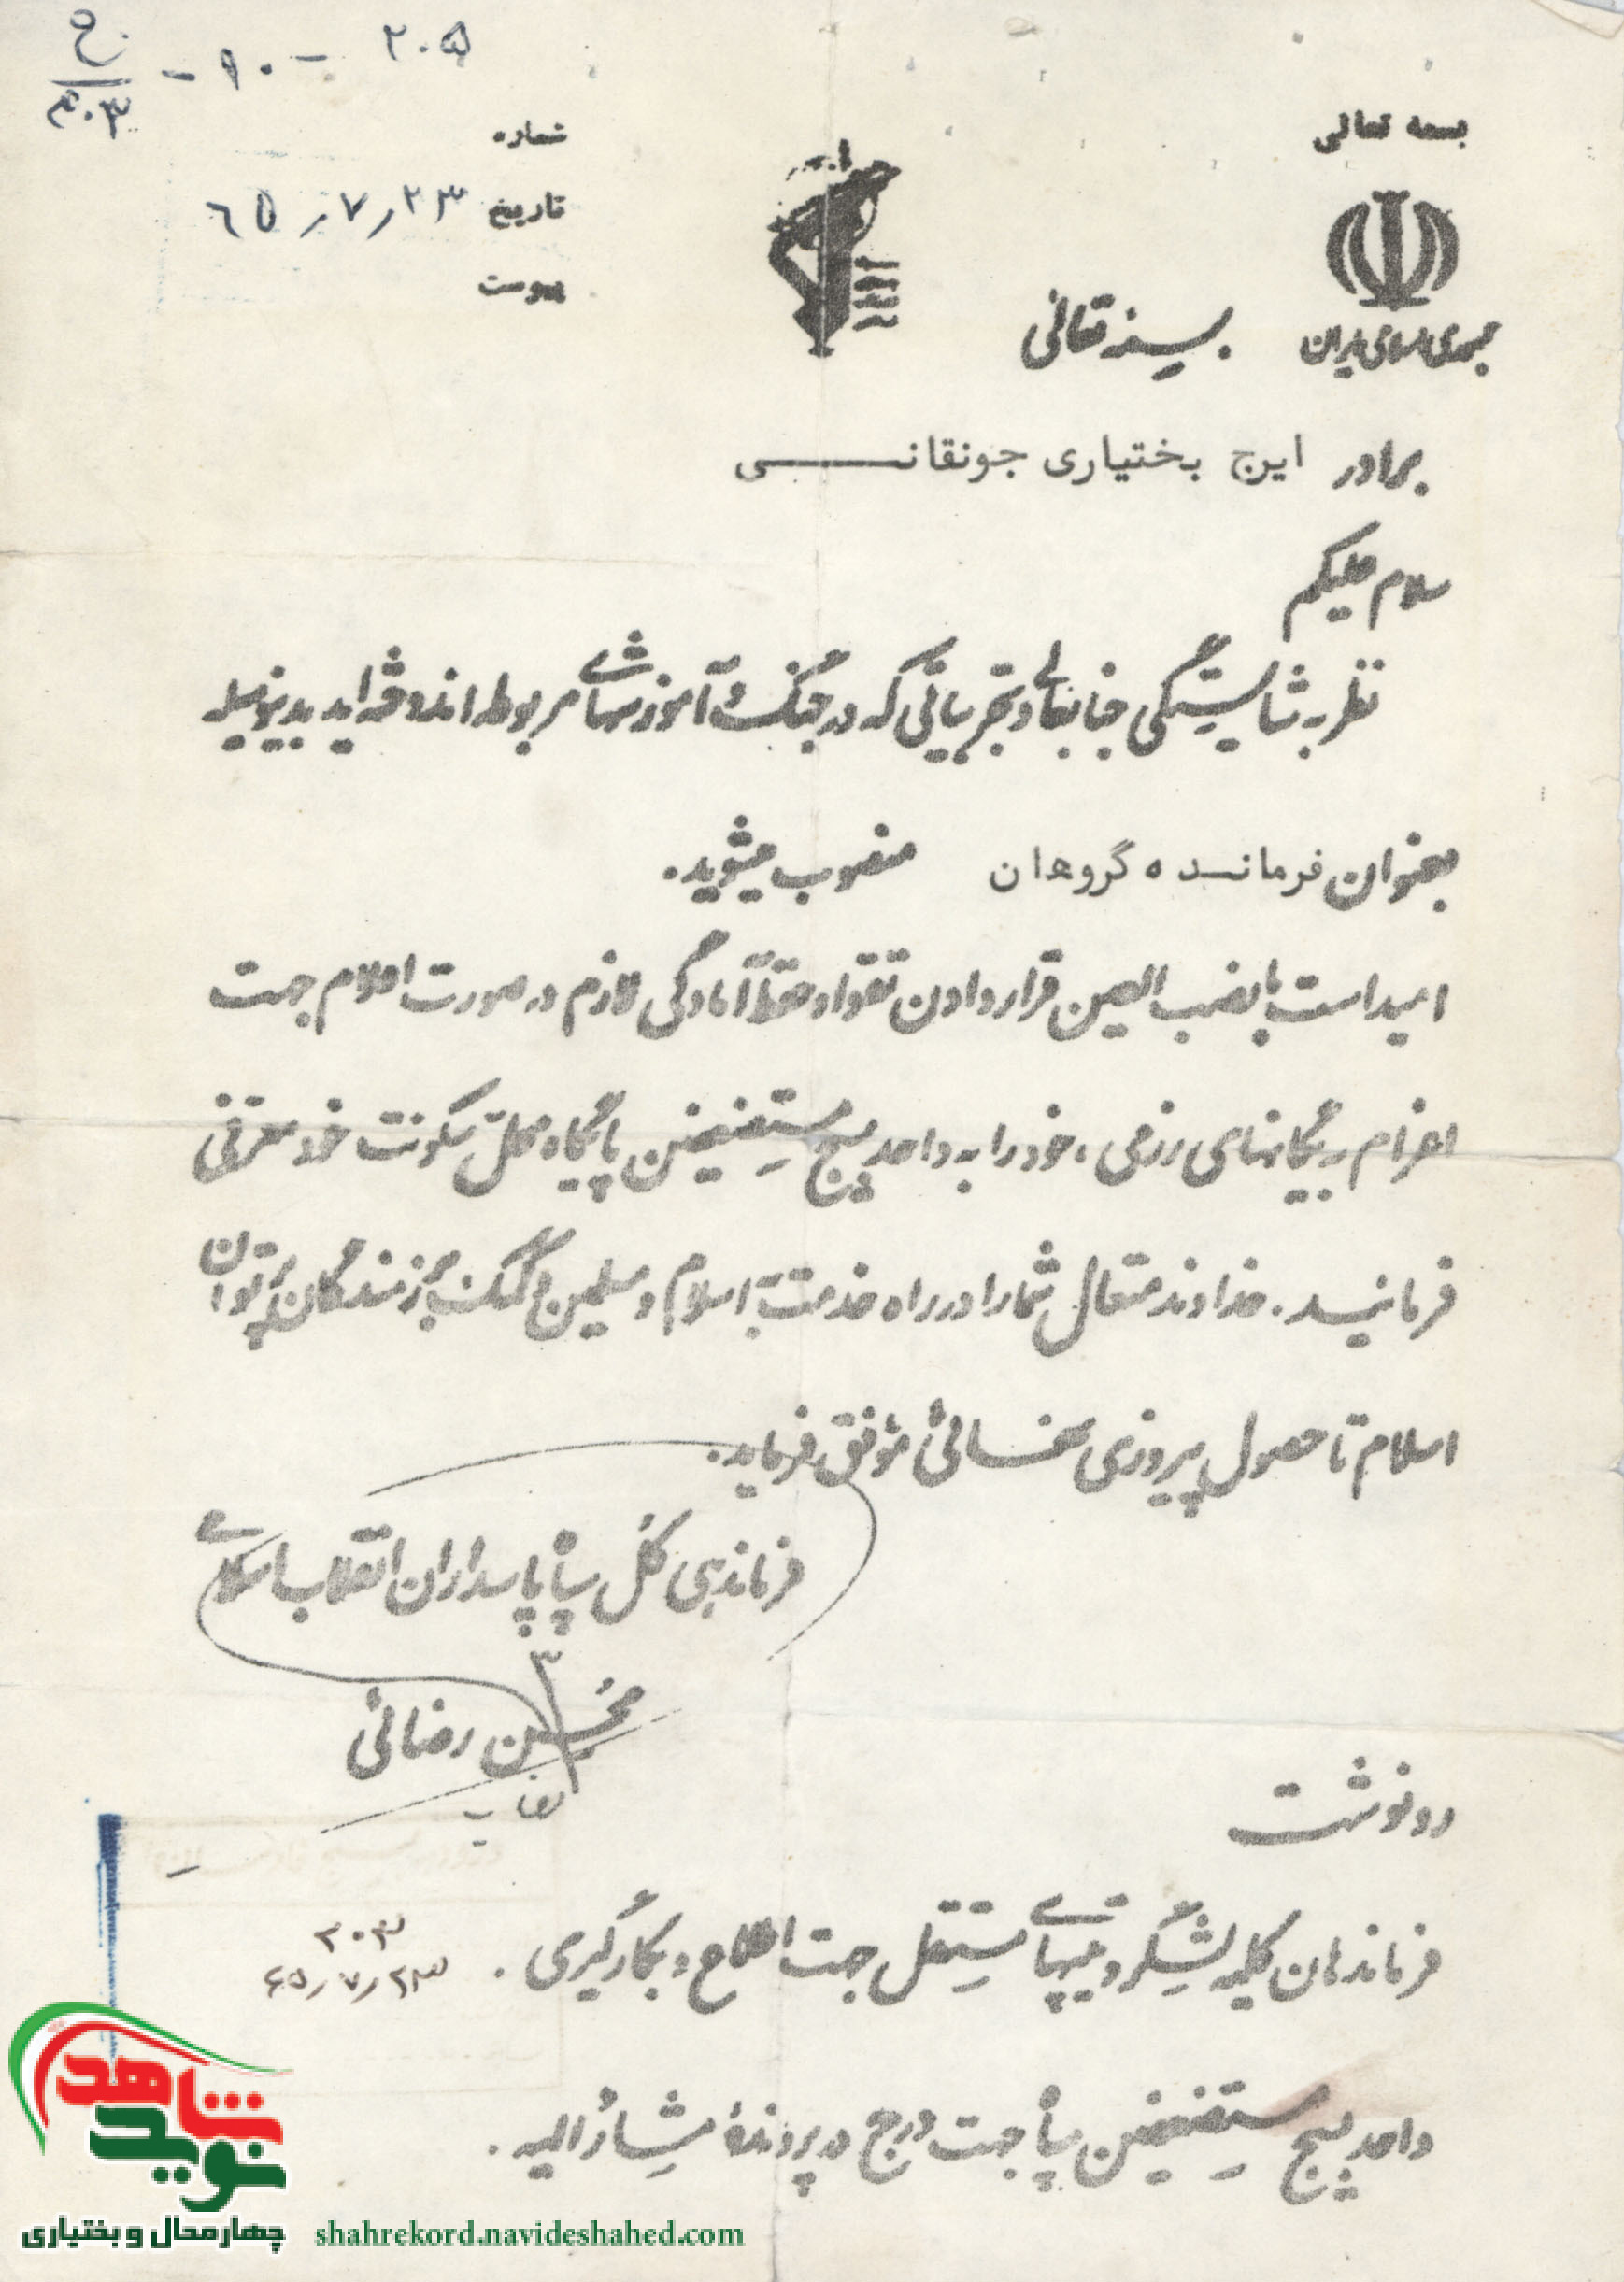 ۲۰۵ - ۹۰ - ح/۳۰۳
بسمه تعالی
شماره
تاریخ ۲۳ / ۷ / ٦٥
پیوست
جمهوری اسلامی ایران
بسمه تعالی
برادر ایرج بختیاری جونقانی
سلام علیکم
نظر به شایستگی جنابعالی و تجربیاتی که در جنگ و آموزشهای مربوطه اندوخته اید بدینوسیله
بعنوان فرمانده گروهان منصوب میشوید.
امید است با نصب العین قرار دادن تقوا و حفظ آمادگی لازم در صورت اعلام جهت
اعزام به یگانهای رزمی، خود را به واحد بسیج مستضعفین پایگاه محل سکونت خود معرفی
فرمائید. خداوند متعال شما را در راه خدمت به اسلام و مسلمین و کمک به رزمندگان پرتوان
اسلام تا حصول پیروزی نهائی موفق فرماید.
فرماندهی کل سپاه پاسداران انقلاب اسلامی
محسن رضائی
رونوشت
فرماندهان کلیه لشگر و تیپهای مستقل جهت اطلاع و بکارگیری.
۳۰۳
۲۳ / ۷ / ۶۵
واحد بسیج مستضعفین سپاه جهت درج در پرونده مشارالیه.
نوید شاهد
چهارمحال و بختیاری
shahrekord.navideshahed.com